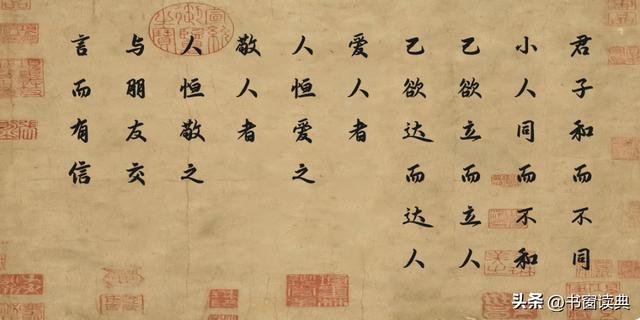 君子和而不同
小人同而不和
己欲立而立人
己欲达而达人
爱人者
人恒爱之
敬人者
人恒敬之
与朋友交
言而有信
头条 @书窗读典